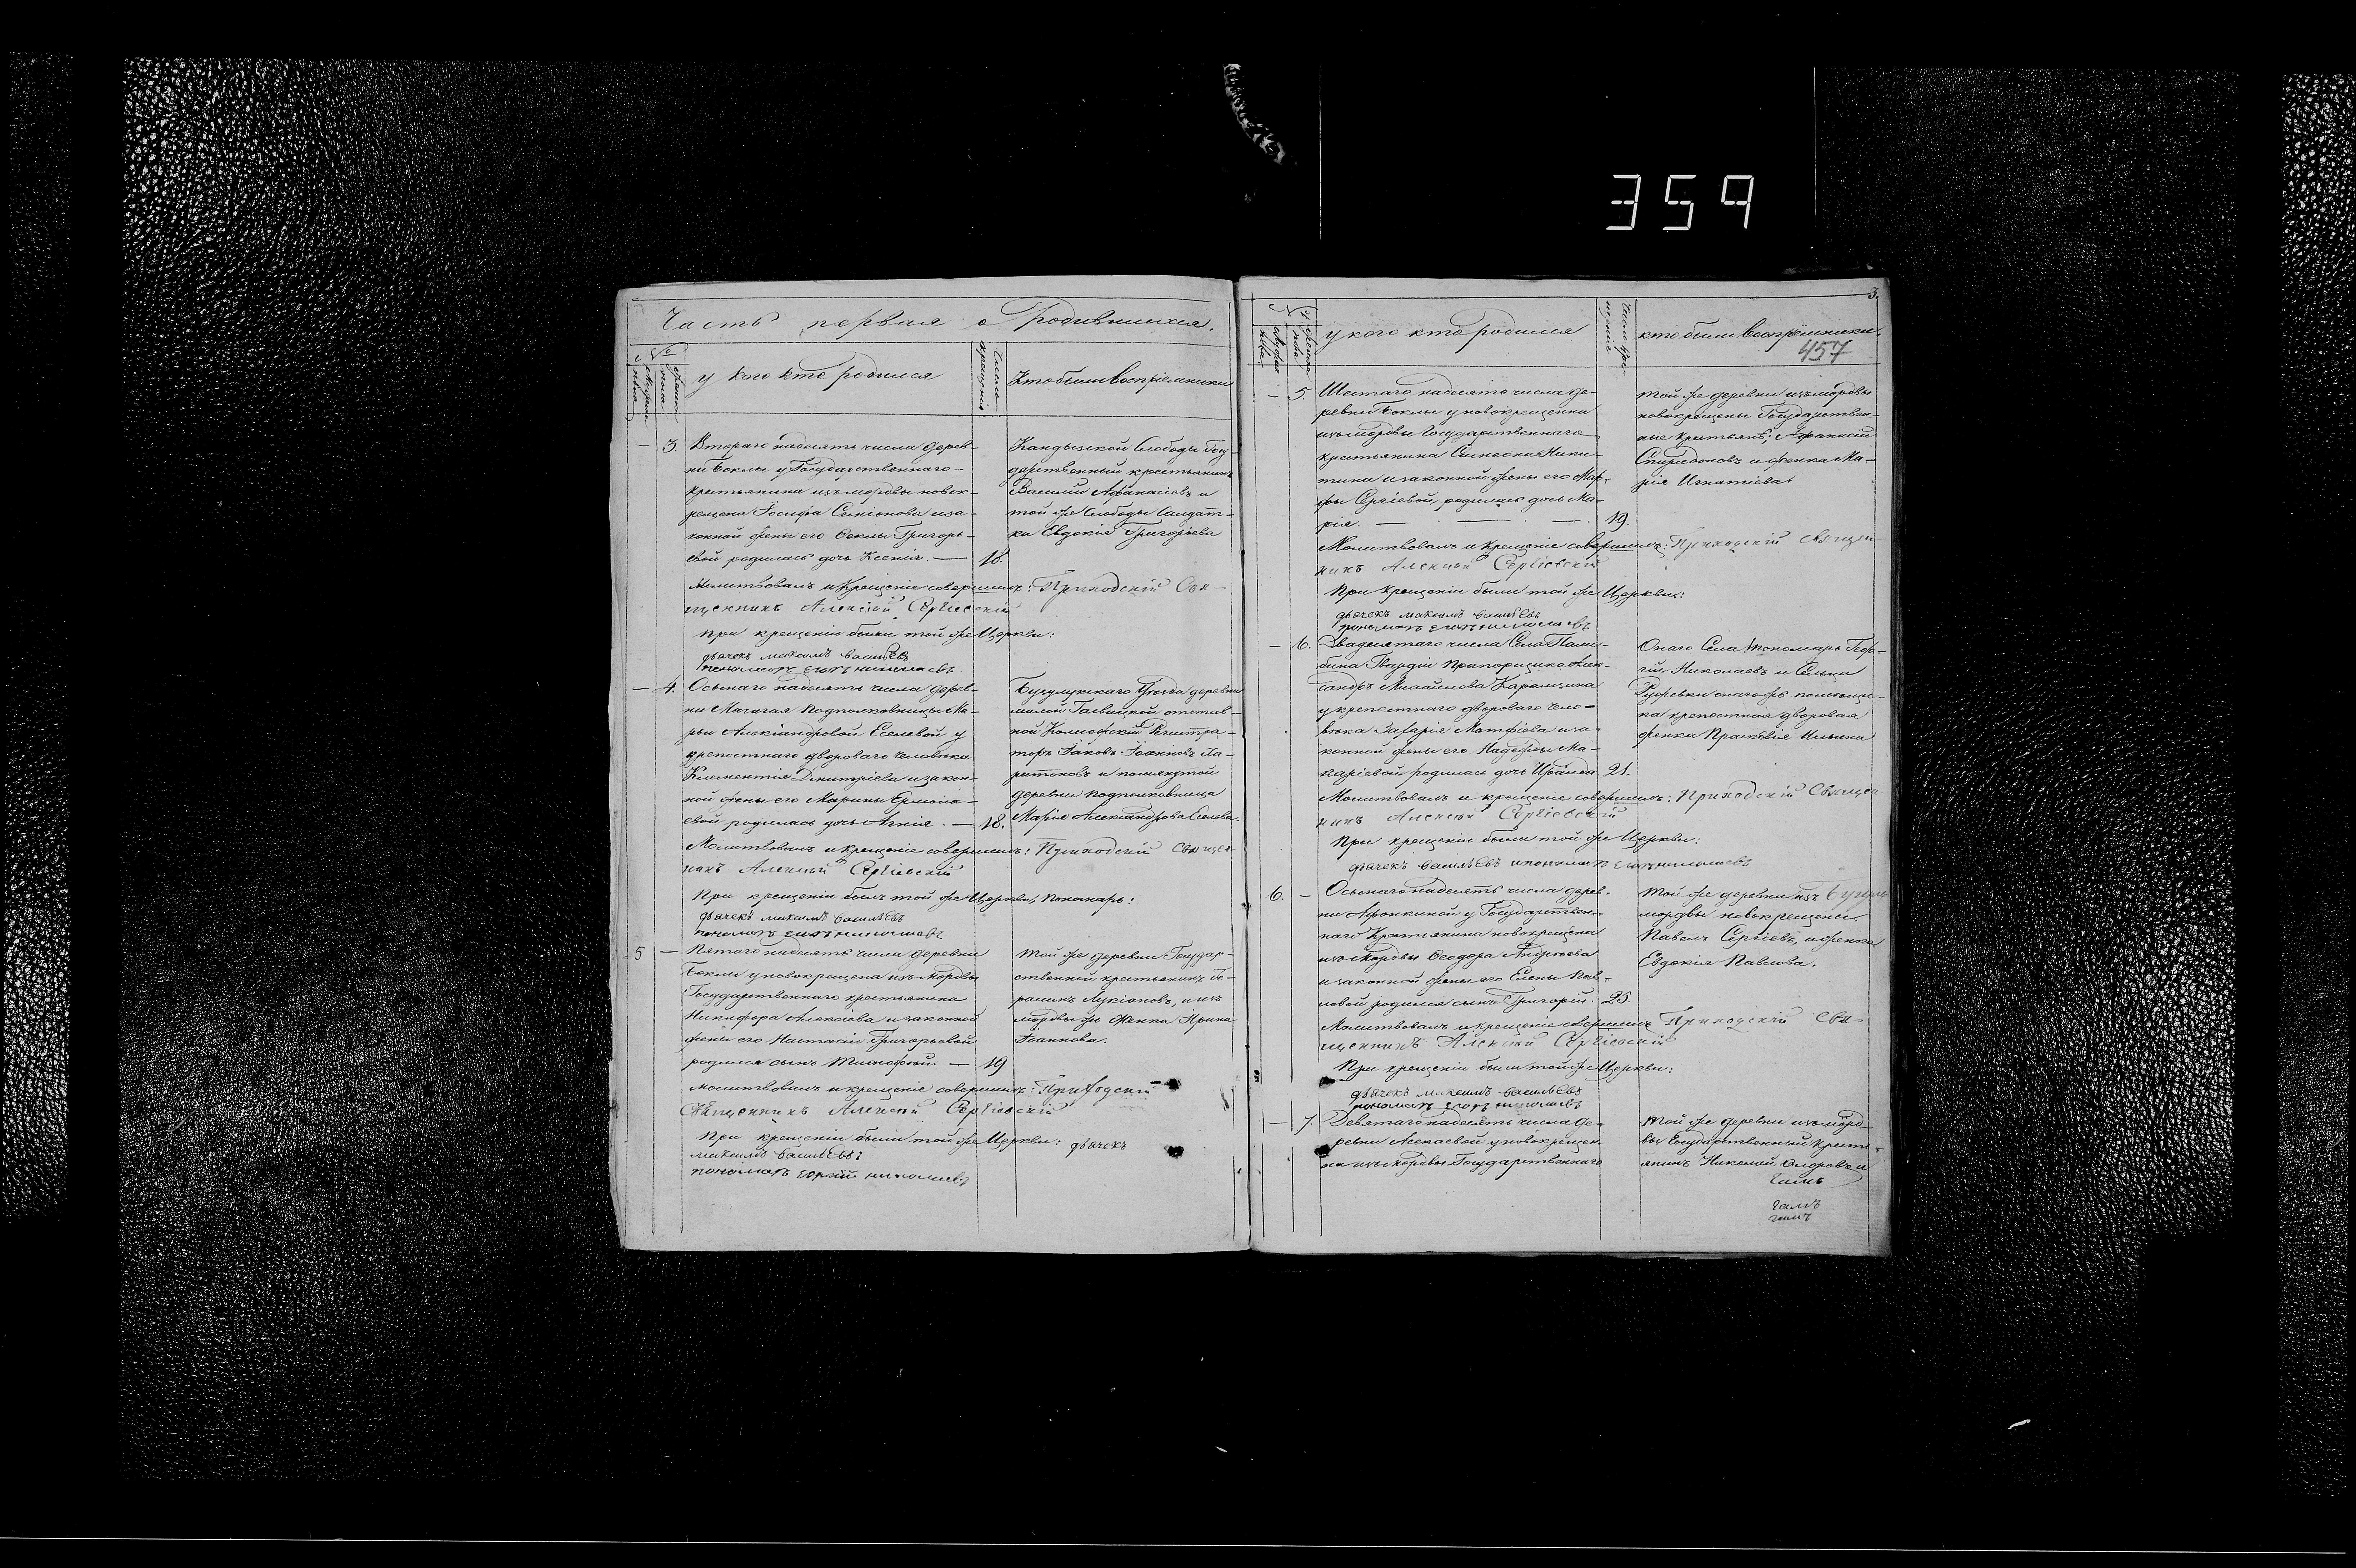 359
Часть первая о Родившихся.
№
мужска
женска
у кого кто родился
Число крещенія
Кто были Восприемники
— 3. Втораго надесять числа дерев-
ни Боклы у Государственнаго
крестьянина изъ мордвы новок-
рещена Іосифа Симіонова и за-
конной жены его Феклы Григорь-
евой родилась дочь Ксенія. — 18.
Кандызской Слободы Госу-
дарственный крестьянинъ
Василій Афанасіевъ и
той же Слободы Салдат-
ка Евдокія Григорьева
Молитвовалъ и Крещеніе совершилъ: Приходскій Свя-
щенникъ Алексій Сергіевскій
При крещеніи были той же Церкви:
дьячекъ максимъ васильевъ
пономарь николаевъ
— 4. Осьмаго надесять числа дерев-
ни Подполковницы Ма-
рьи Александровой Еселевой у
крепостнаго двороваго человека
Климентія Димитріева и закон-
ной жены его Марины Ермола-
евой родилась дочь Агнія. — 18.
Бугульминскаго Уезда деревни
малой отстав-
ной Коллежскій Регистра-
торъ Іаковъ Іоанновъ Ха-
ритоновъ и помянутой
деревни подполковница
Марія Александрова Еселева.
Молитвовалъ и крещеніе совершилъ: Приходскій Священ-
никъ Алексій Сергіевскій
При крещеніи былъ той же Церкви, Пономарь:
дьячекъ максимъ васильевъ
пономарь николаевъ
5 — Пятаго надесять числа деревни
Боклы у новокрещена изъ Мордвы
Государственнаго крестьянина
Никифора Алексіева и законной
жены его Настасіи Григорьевой
родился сынъ Тимофей. — 19
Той же деревни Государ-
ственной крестьянинъ Ге-
расимъ Лукіановъ, и изъ
мордвы же Женка Ирина
Іоаннова.
молитвовалъ и крещеніе совершилъ: Приходскій
Священникъ Алексій Сергіевскій
При крещеніи были той же Церкви: дьячекъ
максимъ васильевъ
пономарь николаевъ
3.
№
мужска
женска
у кого кто родился
Число крещенія
кто были Воспріемники.
457
— 5. Шестаго надесять числа де-
ревни Боклы у новокрещенна
изъ мордвы Государственнаго
крестьянина Симеона Ники-
тина и законной жены его Мар-
фы Сергіевой, родилась дочь Ма-
рія. — 19.
Той же деревни изъ мордвы
новокрещены Государствен-
ные крестьяне; Афанасій
Спиридоновъ и женка Ма-
рія Игнатіева
Молитвовалъ и Крещеніе совершилъ: Приходскій Священ-
никъ Алексій Сергіевскій
При Крещеніи были той же Церкви:
дьячекъ максимъ васильевъ
пономарь николаевъ
— 6. Двадесятаго числа Села
Гвардіи Прапорщика Алек-
сандра Михайлова Карамзина
у крепостнаго двороваго чело-
века Захарія Матфіева и за-
конной жены его Надежды Ма-
каріевой родилась дочь Ираида 21.
Онаго Села Пономарь Геор-
гій Николаевъ и Сельца
онаго же помещи-
ка крепостная дворовая
женка Прасковія Ильина
Молитвовалъ и крещеніе совершилъ: Приходскій Священ-
никъ Алексій Сергіевскій
При крещеніи были той же Церкви:
дьячекъ васильевъ и пономарь николаевъ
6. — Осьмаго надесять числа дерев-
ни Афонкиной у Государствен-
наго Крестьянина новокрещена
изъ Мордвы Феодора Андреева
и законной жены его Елены Пав-
ловой родился сынъ Григорій. 25.
Той же деревни изъ
мордвы новокрещены.
Павелъ Сергіевъ, и женка
Евдокія Павлова.
Молитвовалъ и крещеніе совершилъ Приходскій Свя-
щенникъ Алексій Сергіевскій
При крещеніи были той же Церкви:
дьячекъ максимъ васильевъ
пономарь николаевъ
— 7. Девятаго надесять числа де-
ревни Аскаевой у новокрещен-
на изъ мордвы Государственнаго
Той же деревни изъ морд-
вы Государственный крестъ-
янинъ Николай и